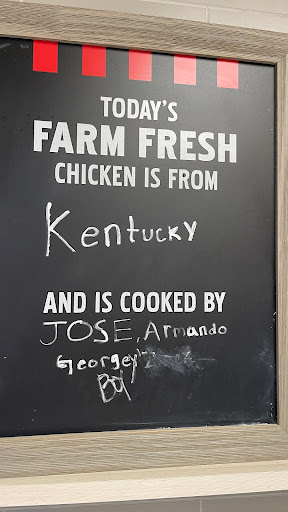 TODAY'S
FARM FRESH
CHICKEN IS FROM
Kentucky
AND IS COOKED BY
JOSE, Armando
Georgey